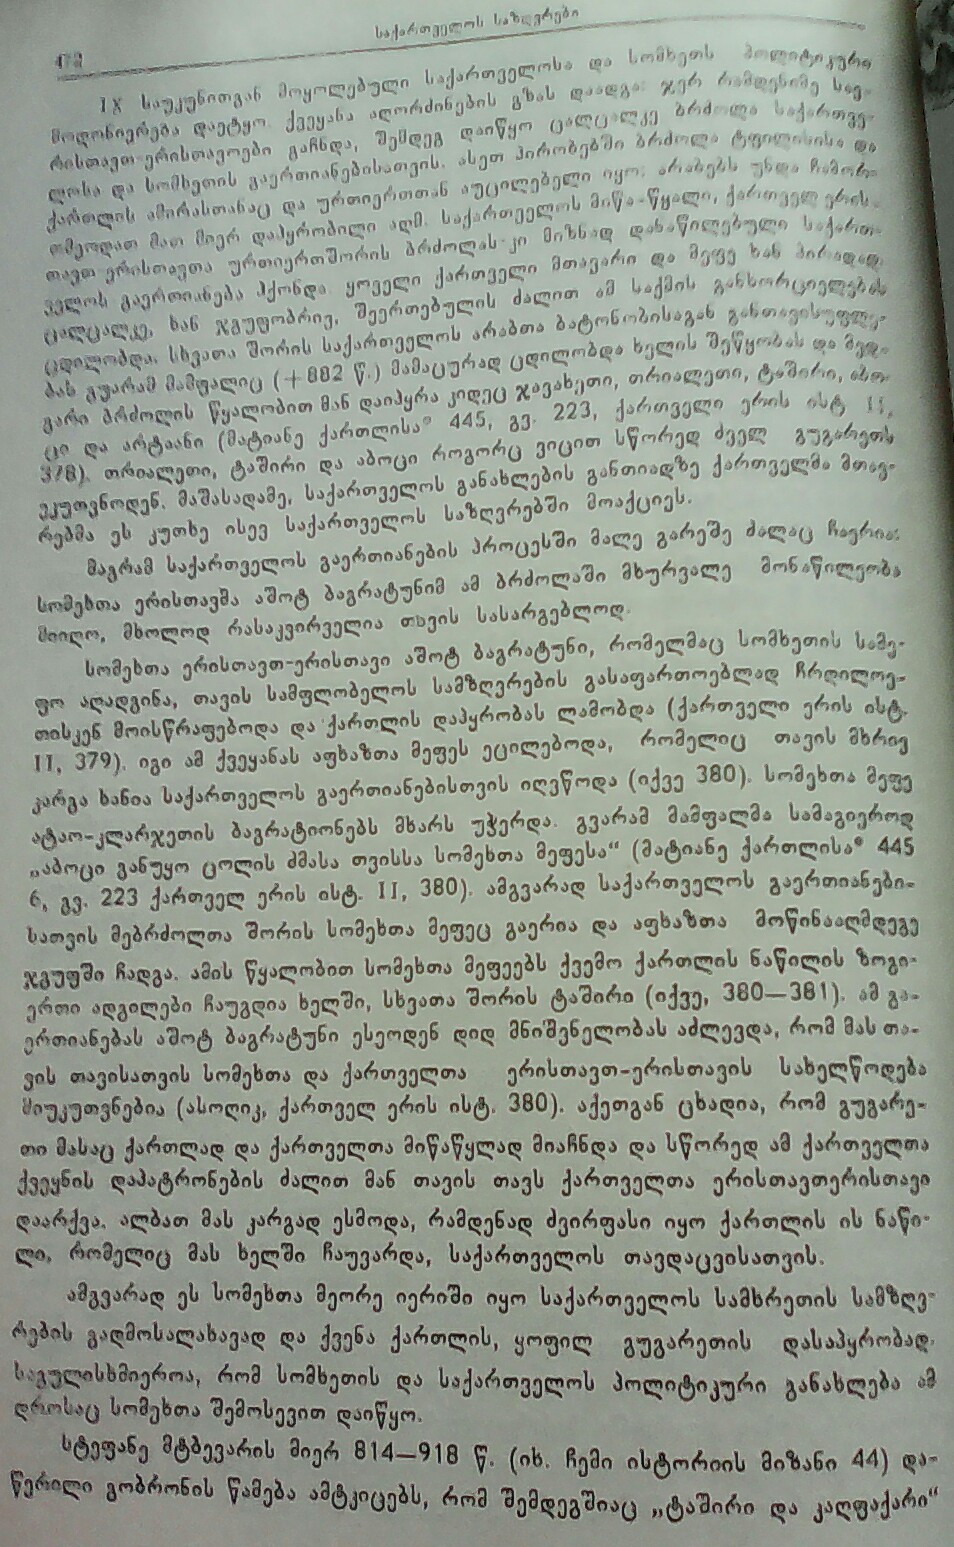 საქართველოს საზღვრები
IX საუკუნითგან მოყოლებული საქართველოსა და სომხეთს პოლიტიკური
მოღონიერება დაეტყო. ქვეყანა აღორძინების გზას დაადგა: ჯერ რამდენიმე საე-
რისთავთ-ერისთავოები გაჩნდა, შემდეგ დაიწყო ცალცალკე ბრძოლა საქართვე-
ლოსა და სომხეთის გაერთიანებისათვის. ასეთ პირობებში ბრძოლა ტფილისისა და
ქართლის ამირასთანაც და ურთიერთთან აუცილებელი იყო: არაბებს უნდა ჩამორ-
თმეოდათ მათ მიერ დაპყრობილი აღმ. საქართველოს მიწა-წყალი, ქართველ ერის-
თავთ ერისთავთა ურთიერთშორის ბრძოლას კი მიზნად დანაწილებული საქართ-
ველოს გაერთიანება ჰქონდა. ყოველი ქართველი მთავარი და მეფე ხან პირადად,
ცალცალკე, ხან ჯგუფობრივ, შეერთებულის ძალით ამ საქმის განხორციელებას
ცდილობდა. სხვათა შორის საქართველოს არაბთა ბატონობისაგან განთავისუფლე-
ბას გუარამ მამფალიც (+882 წ.) მამაცურად ცდილობდა ხელის შეწყობას და მედ-
გარი ბრძოლის წყალობით მან დაიპყრა კიდეც ჯავახეთი, თრიალეთი, ტაშირი, აბო-
ცი და არტაანი (მატიანე ქართლისაჲ 445, გვ. 223, ქართველი ერის ისტ. II,
378). თრიალეთი, ტაშირი და აბოცი როგორც ვიცით სწორედ ძველ გუგარეთს
ეკუთვნოდენ. მაშასადამე, საქართველოს განახლების განთიადზე ქართველმა მთავ-
რებმა ეს კუთხე ისევ საქართველოს საზღვრებში მოაქციეს.
მაგრამ საქართველოს გაერთიანების პროცესში მალე გარეშე ძალაც ჩაერია:
სომეხთა ერისთავმა აშოტ ბაგრატუნიმ ამ ბრძოლაში მხურვალე მონაწილეობა
მიიღო, მხოლოდ რასაკვირველია თავის სასარგებლოდ.
სომეხთა ერისთავთ-ერისთავი აშოტ ბაგრატუნი, რომელმაც სომხეთის სამე-
ფო აღადგინა, თავის სამფლობელოს სამზღვრების გასაფართოებლად ჩრდილოე-
თისკენ მოისწრაფებოდა და ქართლის დაპყრობას ლამობდა (ქართველი ერის ისტ.
II, 379). იგი ამ ქვეყანას აფხაზთა მეფეს ეცილებოდა, რომელიც თავის მხრივ
კარგა ხანია საქართველოს გაერთიანებისთვის იღვწოდა (იქვე 380). სომეხთა მეფე
ატაო-კლარჯეთის ბაგრატიონებს მხარს უჭერდა. გვარამ მამფალმა სამაგიეროდ
„აბოცი განუყო ცოლის ძმასა თვისსა სომეხთა მეფესა“ (მატიანე ქართლისაჲ 445
6, გვ. 223 ქართველ ერის ისტ. II, 380). ამგვარად საქართველოს გაერთიანები-
სათვის მებრძოლთა შორის სომეხთა მეფეც გაერია და აფხაზთა მოწინააღმდეგე
ჯგუფში ჩადგა. ამის წყალობით სომეხთა მეფეებს ქვემო ქართლის ნაწილის ზოგი-
ერთი ადგილები ჩაუგდია ხელში, სხვათა შორის ტაშირი (იქვე, 380—381). ამ გა-
ერთიანებას აშოტ ბაგრატუნი ესეოდენ დიდ მნიშვნელობას აძლევდა, რომ მას თა-
ვის თავისათვის სომეხთა და ქართველთა ერისთავთ-ერისთავის სახელწოდება
მიუკუთვნებია (ასოღიკ, ქართველ ერის ისტ. 380). აქეთგან ცხადია, რომ გუგარე-
თი მასაც ქართლად და ქართველთა მიწაწყლად მიაჩნდა და სწორედ ამ ქართველთა
ქვეყნის დაპატრონების ძალით მან თავის თავს ქართველთა ერისთავთერისთავი
დაარქვა. ალბათ მას კარგად ესმოდა, რამდენად ძვირფასი იყო ქართლის ის ნაწი-
ლი, რომელიც მას ხელში ჩაუვარდა, საქართველოს თავდაცვისათვის.
ამგვარად ეს სომეხთა მეორე იერიში იყო საქართველოს სამხრეთის სამზღვ-
რების გადმოსალახავად და ქვენა ქართლის, ყოფილ გუგარეთის დასაპყრობად.
საგულისხმიეროა, რომ სომხეთის და საქართველოს პოლიტიკური განახლება ამ
დროსაც სომეხთა შემოსევით დაიწყო.
სტეფანე მტბევარის მიერ 814—918 წ. (იხ. ჩემი ისტორიის მიზანი 44) და-
წერილი გობრონის წამება ამტკიცებს, რომ შემდეგშიაც „ტაშირი და კაღფაქარი“